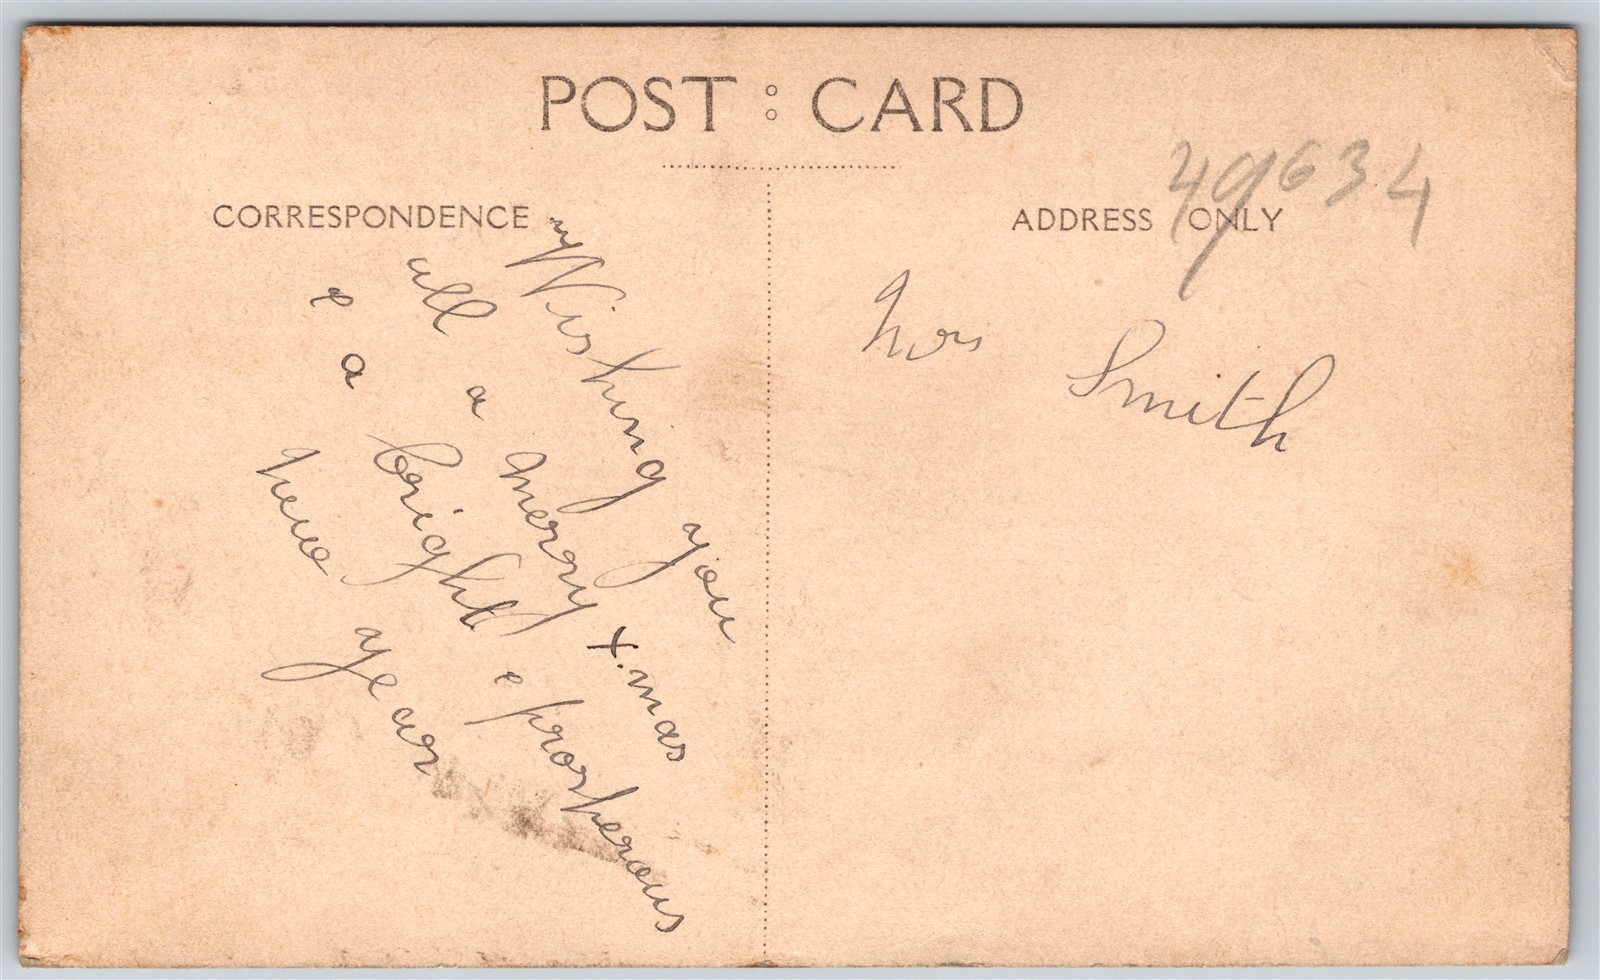 POST : CARD
CORRESPONDENCE
ADDRESS ONLY
49634
Wishing you
all a merry X.mas
& a bright & prosperous
new year
Mrs Smith